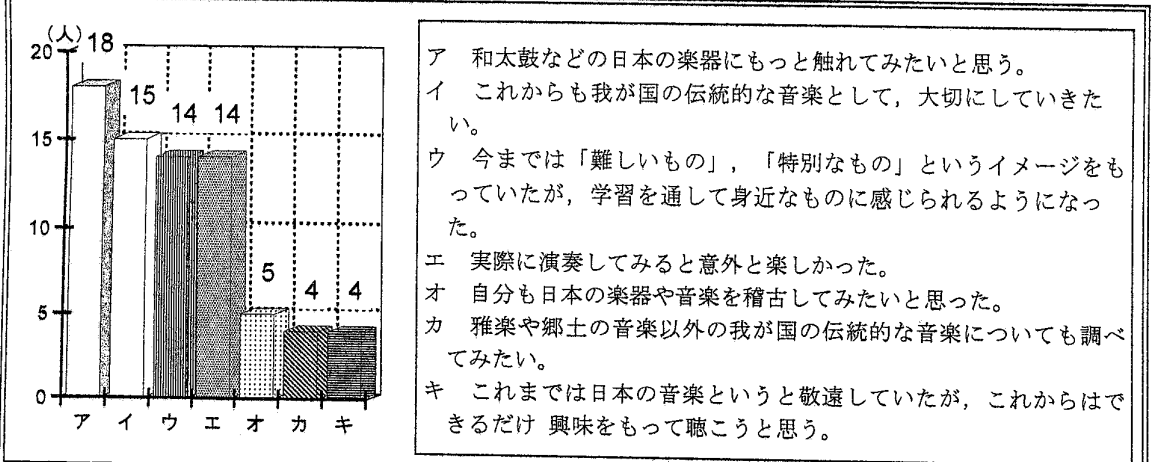 (人)
20
15
10
5
0
18
15
14
14
5
4
4
ア
イ
ウ
エ
オ
カ
キ
ア　和太鼓などの日本の楽器にもっと触れてみたいと思う。
イ　これからも我が国の伝統的な音楽として，大切にしていきた
い。
ウ　今までは「難しいもの」，「特別なもの」というイメージをも
っていたが，学習を通して身近なものに感じられるようになっ
た。
エ　実際に演奏してみると意外と楽しかった。
オ　自分も日本の楽器や音楽を稽古してみたいと思った。
カ　雅楽や郷土の音楽以外の我が国の伝統的な音楽についても調べ
てみたい。
キ　これまでは日本の音楽というと敬遠していたが，これからはで
きるだけ 興味をもって聴こうと思う。